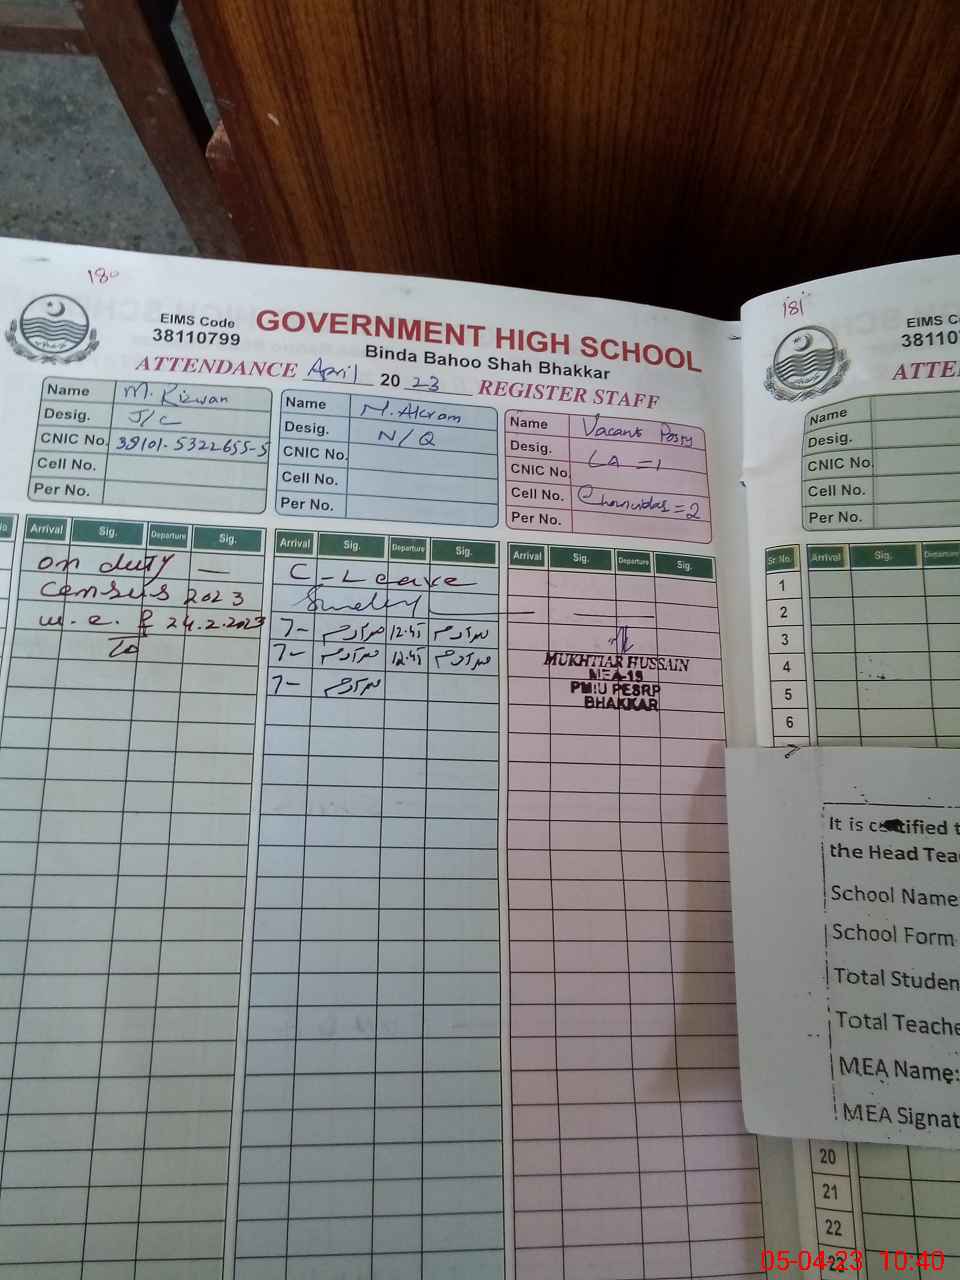 180
EIMS Code
38110799
GOVERNMENT HIGH SCHOOL
Binda Bahoo Shah Bhakkar
ATTENDANCE April 2023 REGISTER STAFF
Name M. Rizwan
Desig. J/C
CNIC No. 38101-5322655-5
Cell No.
Per No.
Name M. Akram
Desig. N/Q
CNIC No.
Cell No.
Per No.
Name Vacant Posts
Desig. LA = 1
CNIC No.
Cell No. Chowkidar = 2
Per No.
Arrival Sig. Departure Sig.
on duty —
Census 2023
w.e.f 24.2.2023
To
Arrival Sig. Departure Sig.
C-Leave
Sunday
7-
7-
7-
Arrival Sig. Departure Sig.
MUKHTIAR HUSSAIN
MEA-19
PMIU PESRP
BHAKKAR
181
EIMS Co
38110
ATTE
Name
Desig.
CNIC No.
Cell No.
Per No.
Sr. No. Arrival Sig. Departure
1
2
3
4
5
6
7
It is certified t
the Head Tea
School Name
School Form
Total Studen
Total Teache
MEA Name:
MEA Signat
20
21
22
23
05-04-23 10:40